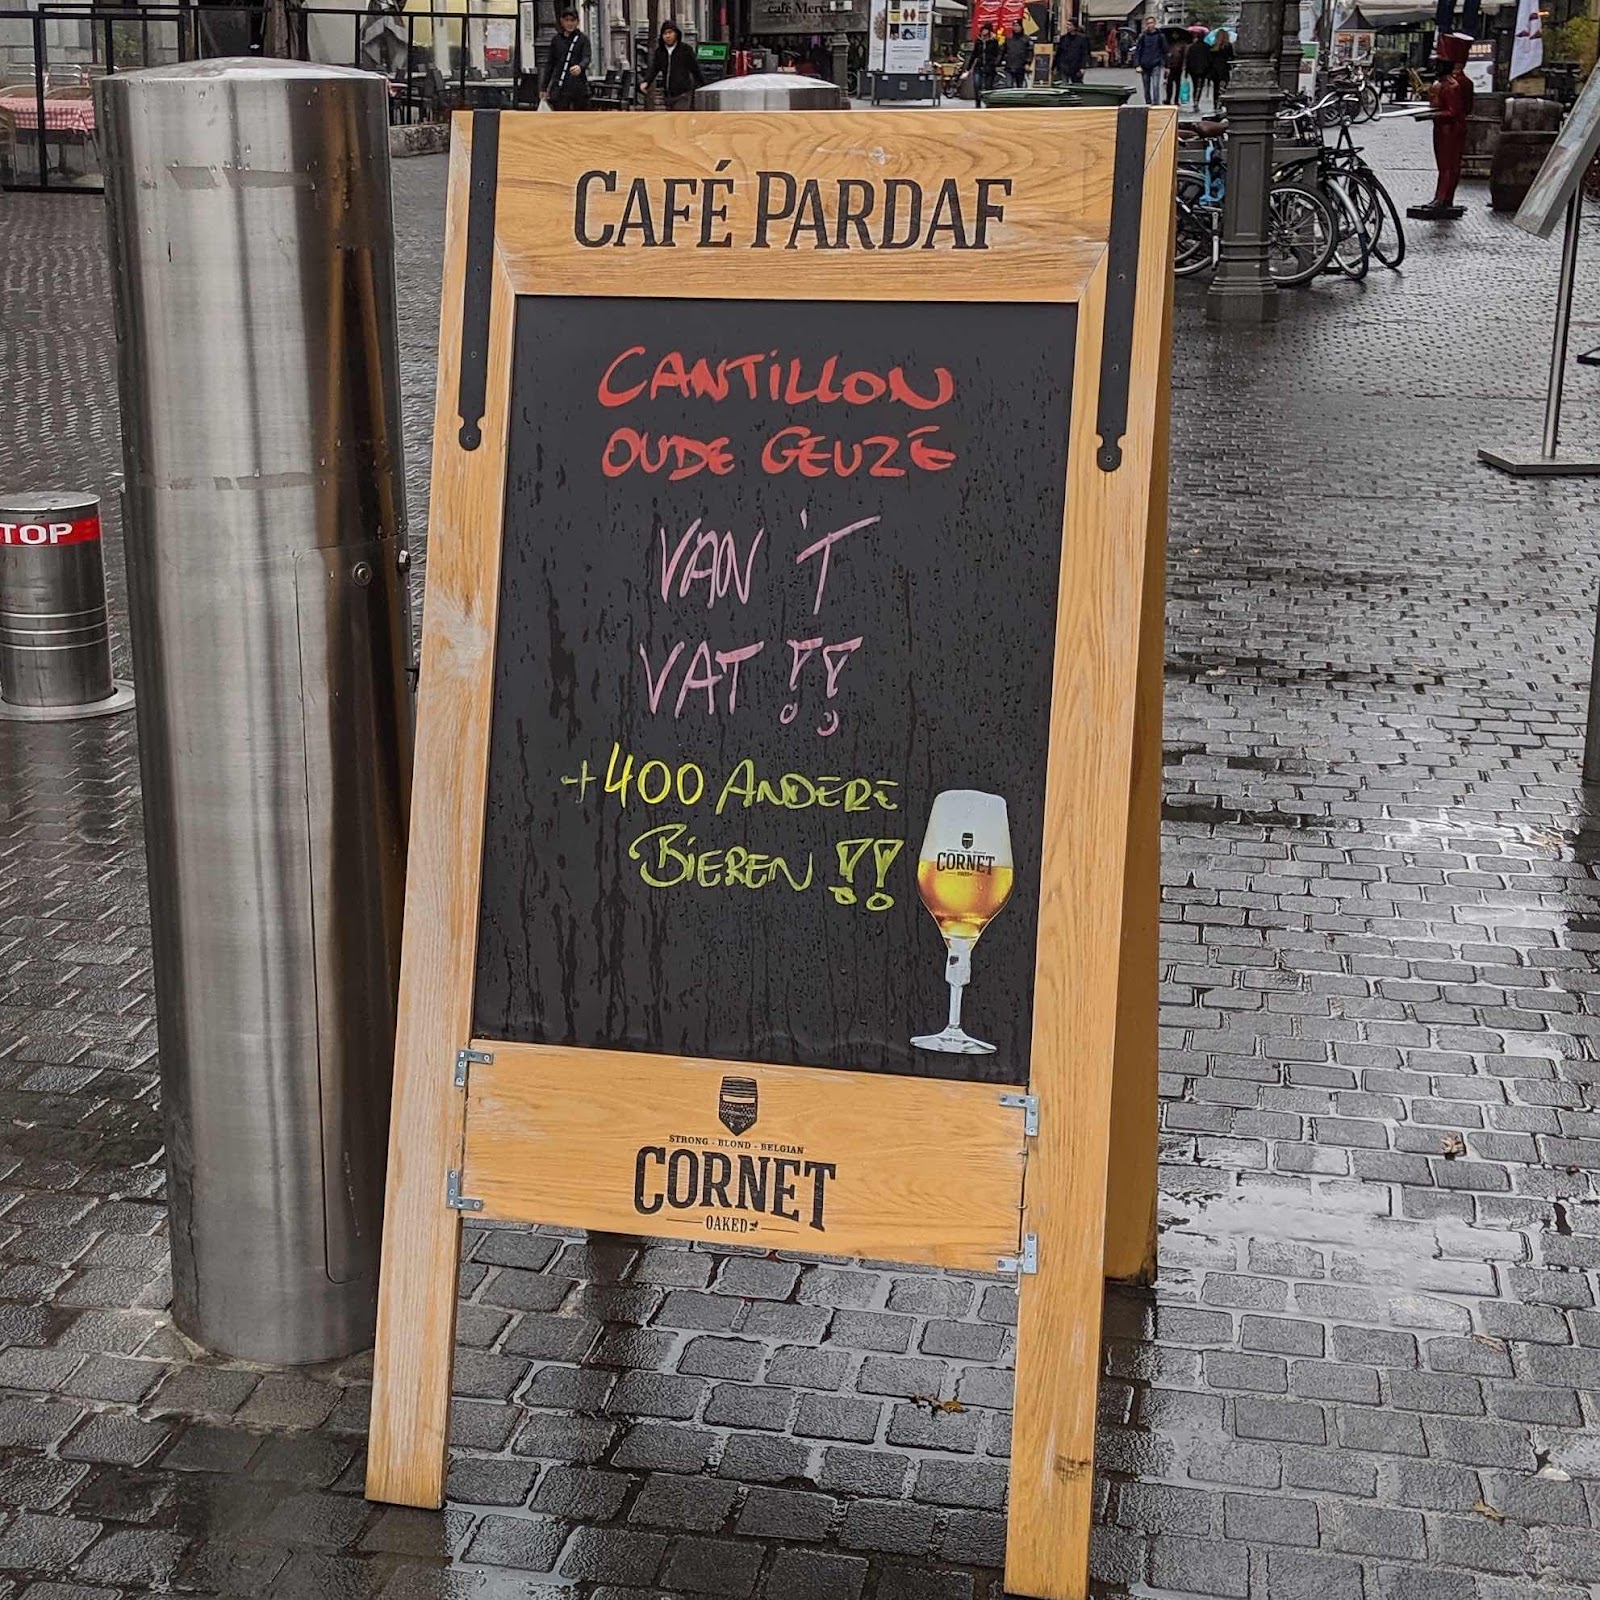 café Merca
CAFÉ PARDAF
CANTILLON
OUDE GEUZE
VAN 'T
VAT !!
+400 ANDERE
BIEREN !!
CORNET
STRONG - BLOND - BELGIAN
CORNET
OAKED
TOP